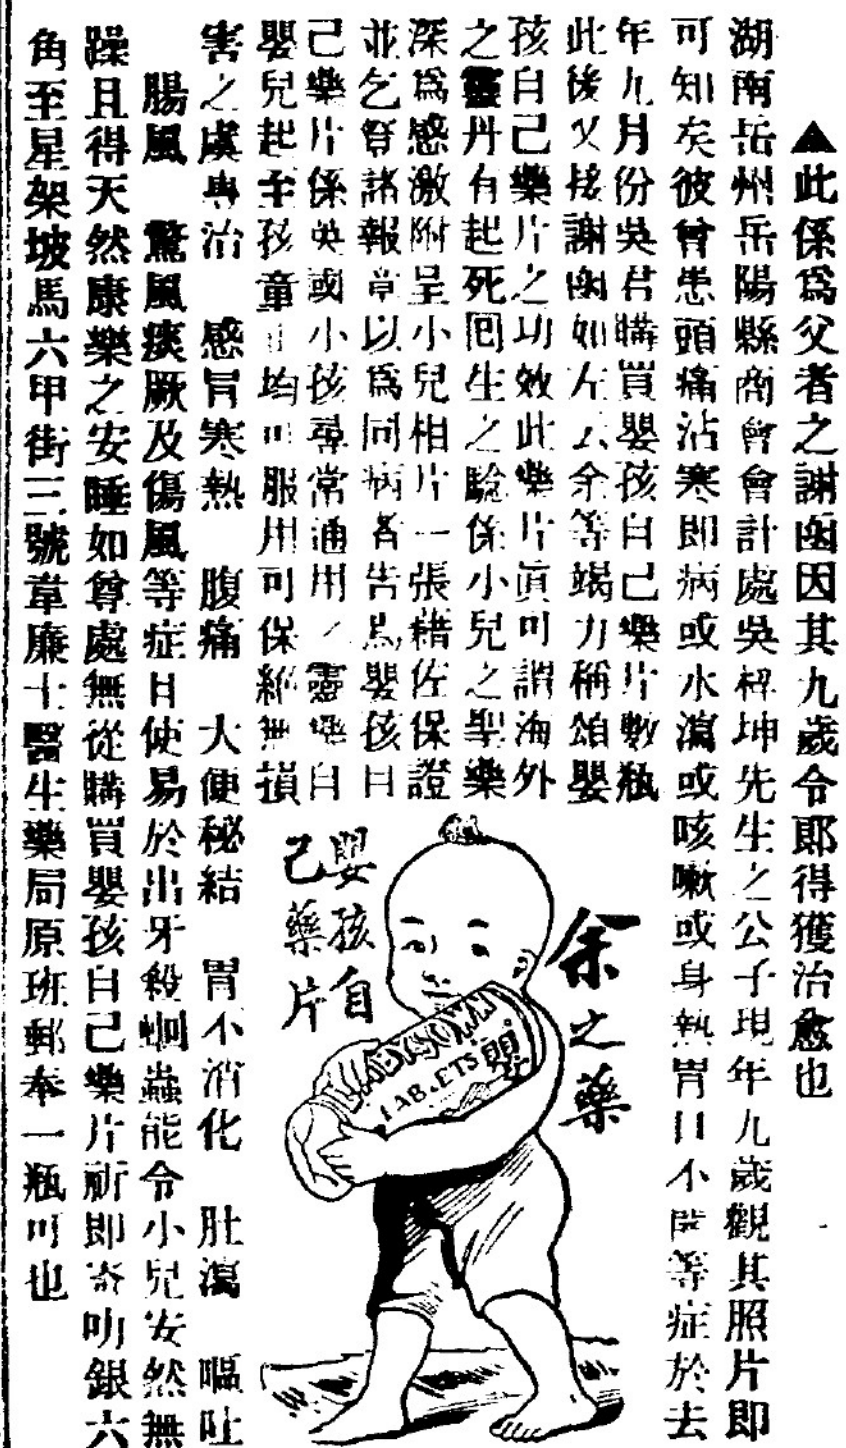 ▲此係爲父者之謝函因其九歲令郎得獲治愈也
湖南岳州岳陽縣商會會計處吳坤先生之公子現年九歲觀其照片即
可知矣彼曾患頭痛沾寒即病或水瀉或咳嗽或身熱胃口不開等症於去
年九月份吳君購買嬰孩自己藥片數瓶
此後又接謝函如左云余等竭力稱頌嬰
孩自己藥片之功效此藥片眞可謂海外
之靈丹有起死回生之驗係小兒之聖藥
深爲感激附呈小兒相片一張藉佐保證
並乞登諸報章以爲同病者告焉嬰孩自
己藥片係英國小孩尋常通用之靈藥自
嬰兒起至孩童時均可服用可保絕無損
害之虞專治 感冒寒熱 腹痛 大便秘結 胃不消化 肚瀉 嘔吐
腸風 驚風痰厥及傷風等症且使易於出牙殺蛔蟲能令小兒安然無
躁且得天然康樂之安睡如尊處無從購買嬰孩自己藥片祈即寄叻銀六
角至星架坡馬六甲街三號韋廉士醫生藥局原班郵奉一瓶可也
余之藥
嬰孩自
己藥片
TABLETS
嬰